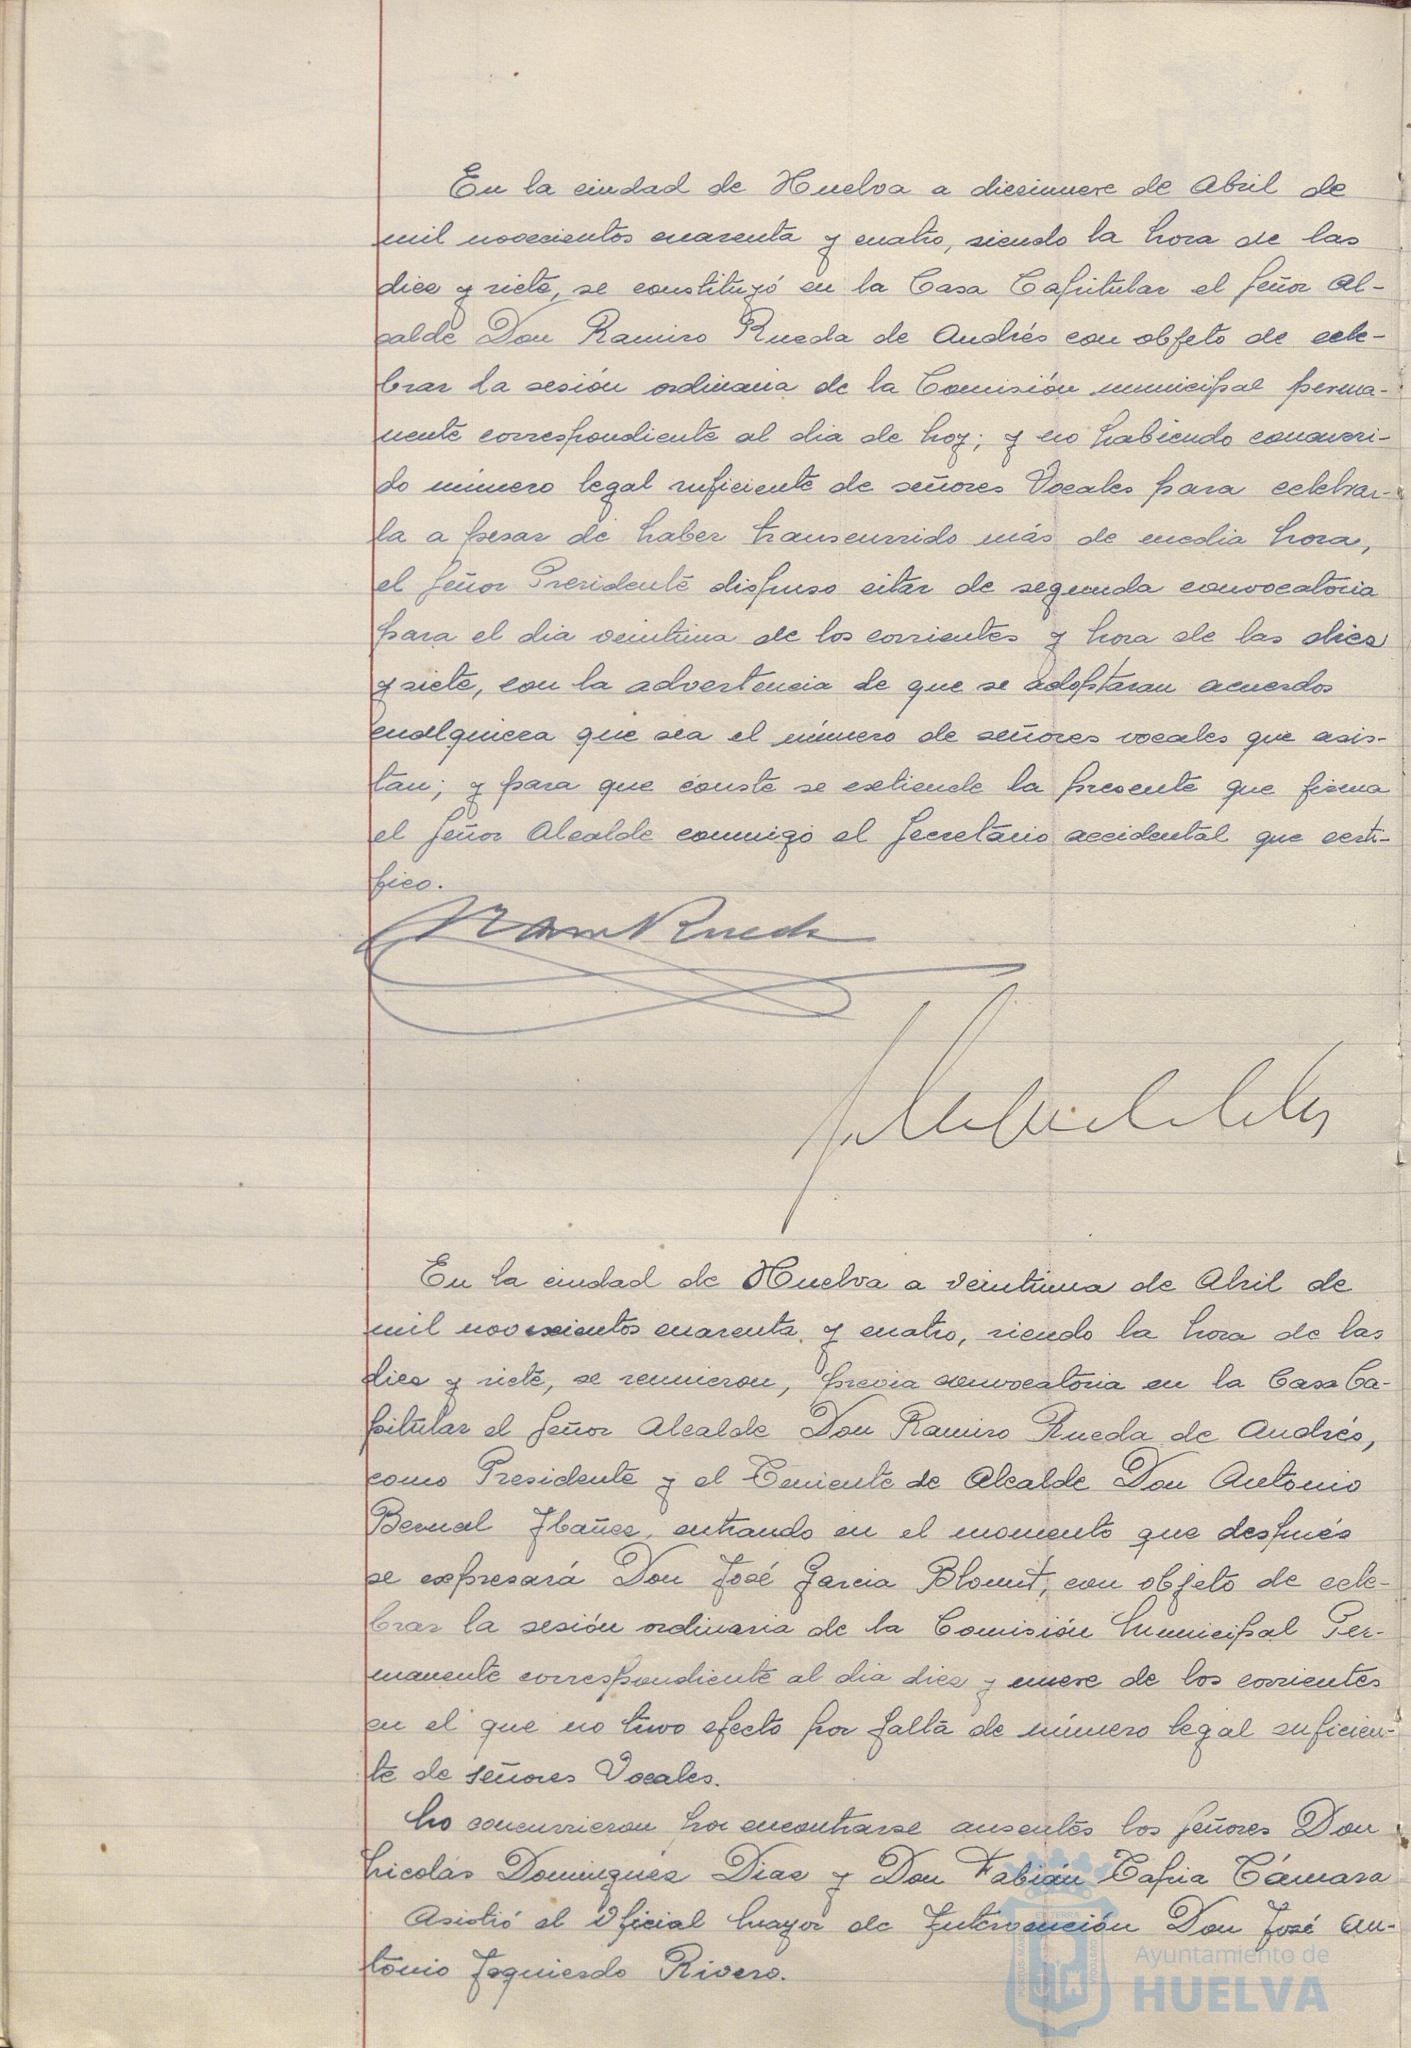 En la ciudad de Huelva a diecinueve de Abril de
mil novecientos cuarenta y cuatro, siendo la hora de las
diez y siete, se constituyó en la Casa Capitular el Señor Al-
calde Don Ramiro Rueda de Andrés con objeto de cele-
brar la sesión ordinaria de la Comisión municipal perma-
nente correspondiente al dia de hoy; y no habiendo concurri-
do número legal suficiente de señores Vocales para celebrar-
la a pesar de haber transcurrido más de media hora,
el Señor Presidente dispuso citar de segunda convocatoria
para el dia veintiuna de los corrientes y hora de las diez
y siete, con la advertencia de que se adoptaran acuerdos
cualquiera que sea el número de señores vocales que asis-
tan; y para que conste se extiende la presente que firma
el Señor Alcalde conmigo el Secretario accidental que certi-
fico.
Ram Rueda
En la ciudad de Huelva a veintiuna de Abril de
mil novecientos cuarenta y cuatro, siendo la hora de las
diez y siete, se reunieron, previa convocatoria en la Casa Ca-
pitular el Señor Alcalde Don Ramiro Rueda de Andrés,
como Presidente y el Teniente de Alcalde Don Antonio
Bernal Ibañez, entrando en el momento que después
se expresará Don José Garcia Blount, con objeto de cele-
brar la sesión ordinaria de la Comisión Municipal Per-
manente correspondiente al dia diez y nueve de los corrientes
en el que no tuvo efecto por falta de número legal suficien-
te de señores Vocales.
No concurrieron por encontrarse ausentes los Señores Don
Nicolás Dominguez Diaz y Don Fabián Tapia Cámara
Asistió el Oficial Mayor de Intervención Don José An-
tonio Izquierdo Rivero.
Ayuntamiento de
HUELVA